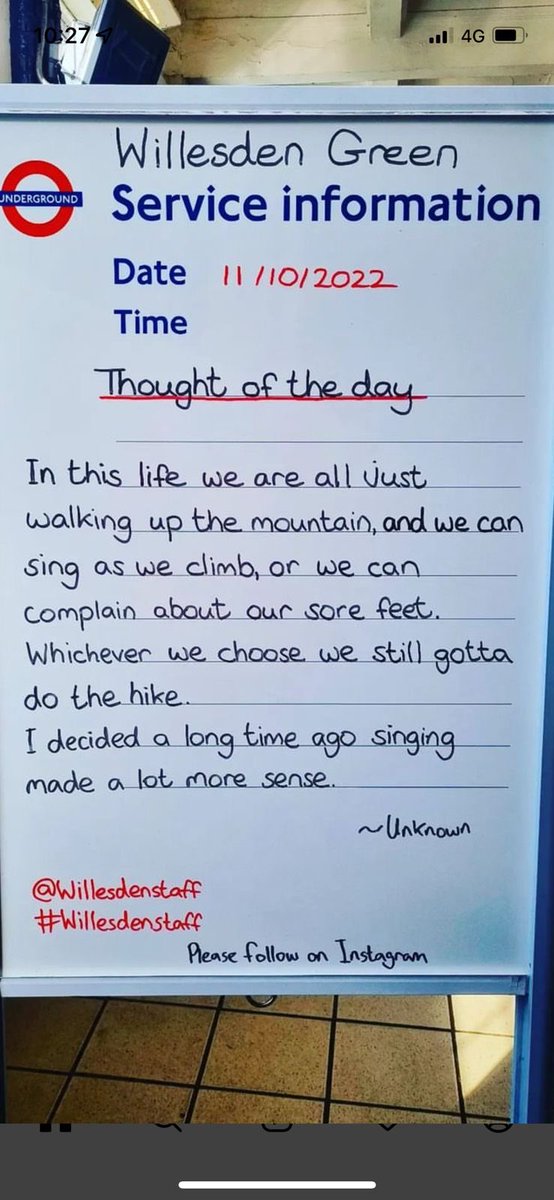 10:27
4G
Willesden Green
UNDERGROUND
Service information
Date 11/10/2022
Time
Thought of the day
In this life we are all just
walking up the mountain, and we can
sing as we climb, or we can
complain about our sore feet.
Whichever we choose we still gotta
do the hike.
I decided a long time ago singing
made a lot more sense.
~Unknown
@Willesdenstaff
#Willesdenstaff
Please follow on Instagram